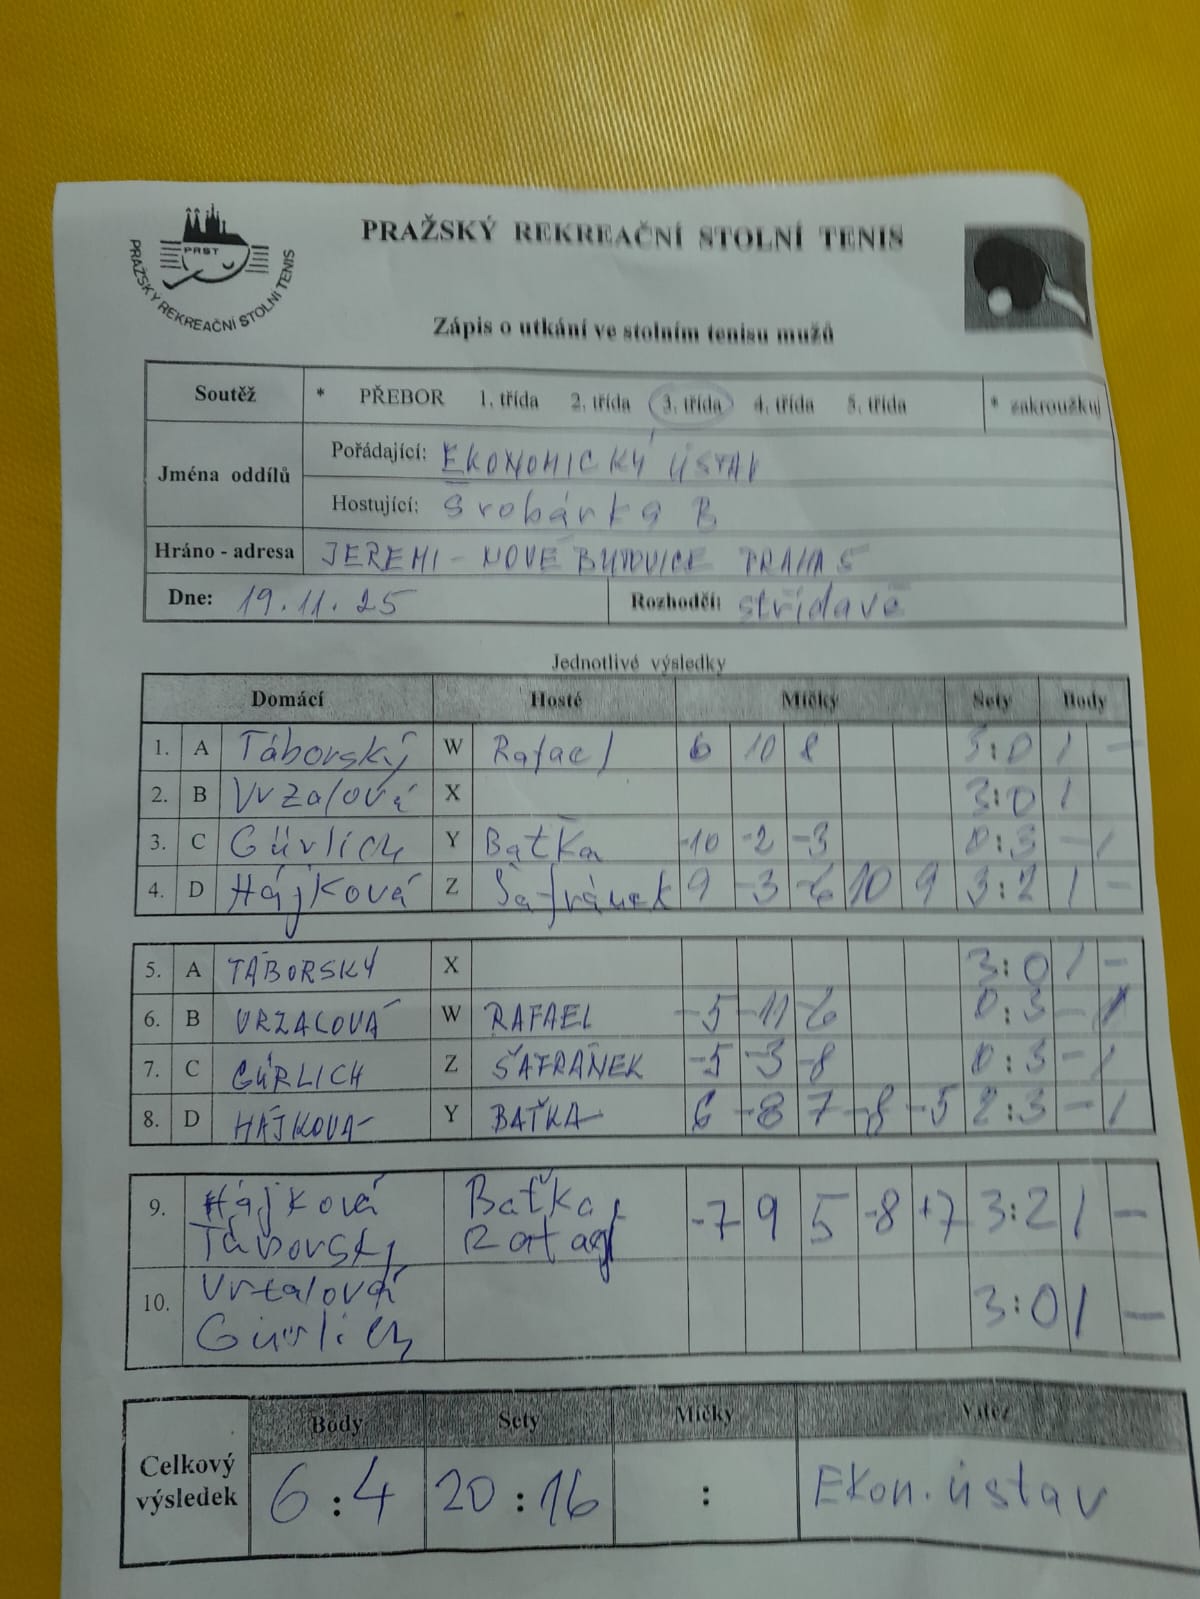 PRST
PRAŽSKÝ REKREAČNÍ STOLNÍ TENIS
PRAŽSKÝ REKREAČNÍ STOLNÍ TENIS
Zápis o utkání ve stolním tenisu mužů
Soutěž * PŘEBOR 1. třída 2. třída 3. třída 4. třída 5. třída * zakroužkuj
Jména oddílů
Pořádající: EKONOMICKÝ ÚSTAV
Hostující: Šrobárka B
Hráno - adresa JEREMI - NOVÉ BUTOVICE PRAHA 5
Dne: 19.11.25 Rozhodčí: střídavě
Jednotlivé výsledky
Domácí Hosté Míčky Sety Body
1. A Táborský W Rafael 6 10 8 3:0 1 -
2. B Vrzalová X 3:0 1
3. C Gürlich Y Baťka -10 -2 -3 0:3 - 1
4. D Hájková Z Šafránek 9 -3 -6 10 9 3:2 1 -
5. A TÁBORSKÝ X 3:0 1 -
6. B VRZALOVÁ W RAFAEL -5 -11 -6 0:3 - 1
7. C GÜRLICH Z ŠAFRÁNEK -5 -3 -8 0:3 - 1
8. D HÁJKOVÁ Y BAŤKA 6 -8 7 -8 -5 2:3 - 1
9. Hájková Baťka -7 9 5 -8 +7 3:2 1 -
Táborský Rafael
10. Vrzalová 3:0 1 -
Gürlich
Body Sety Míčky Vítěz
Celkový výsledek 6:4 20:16 : Ekon. ústav